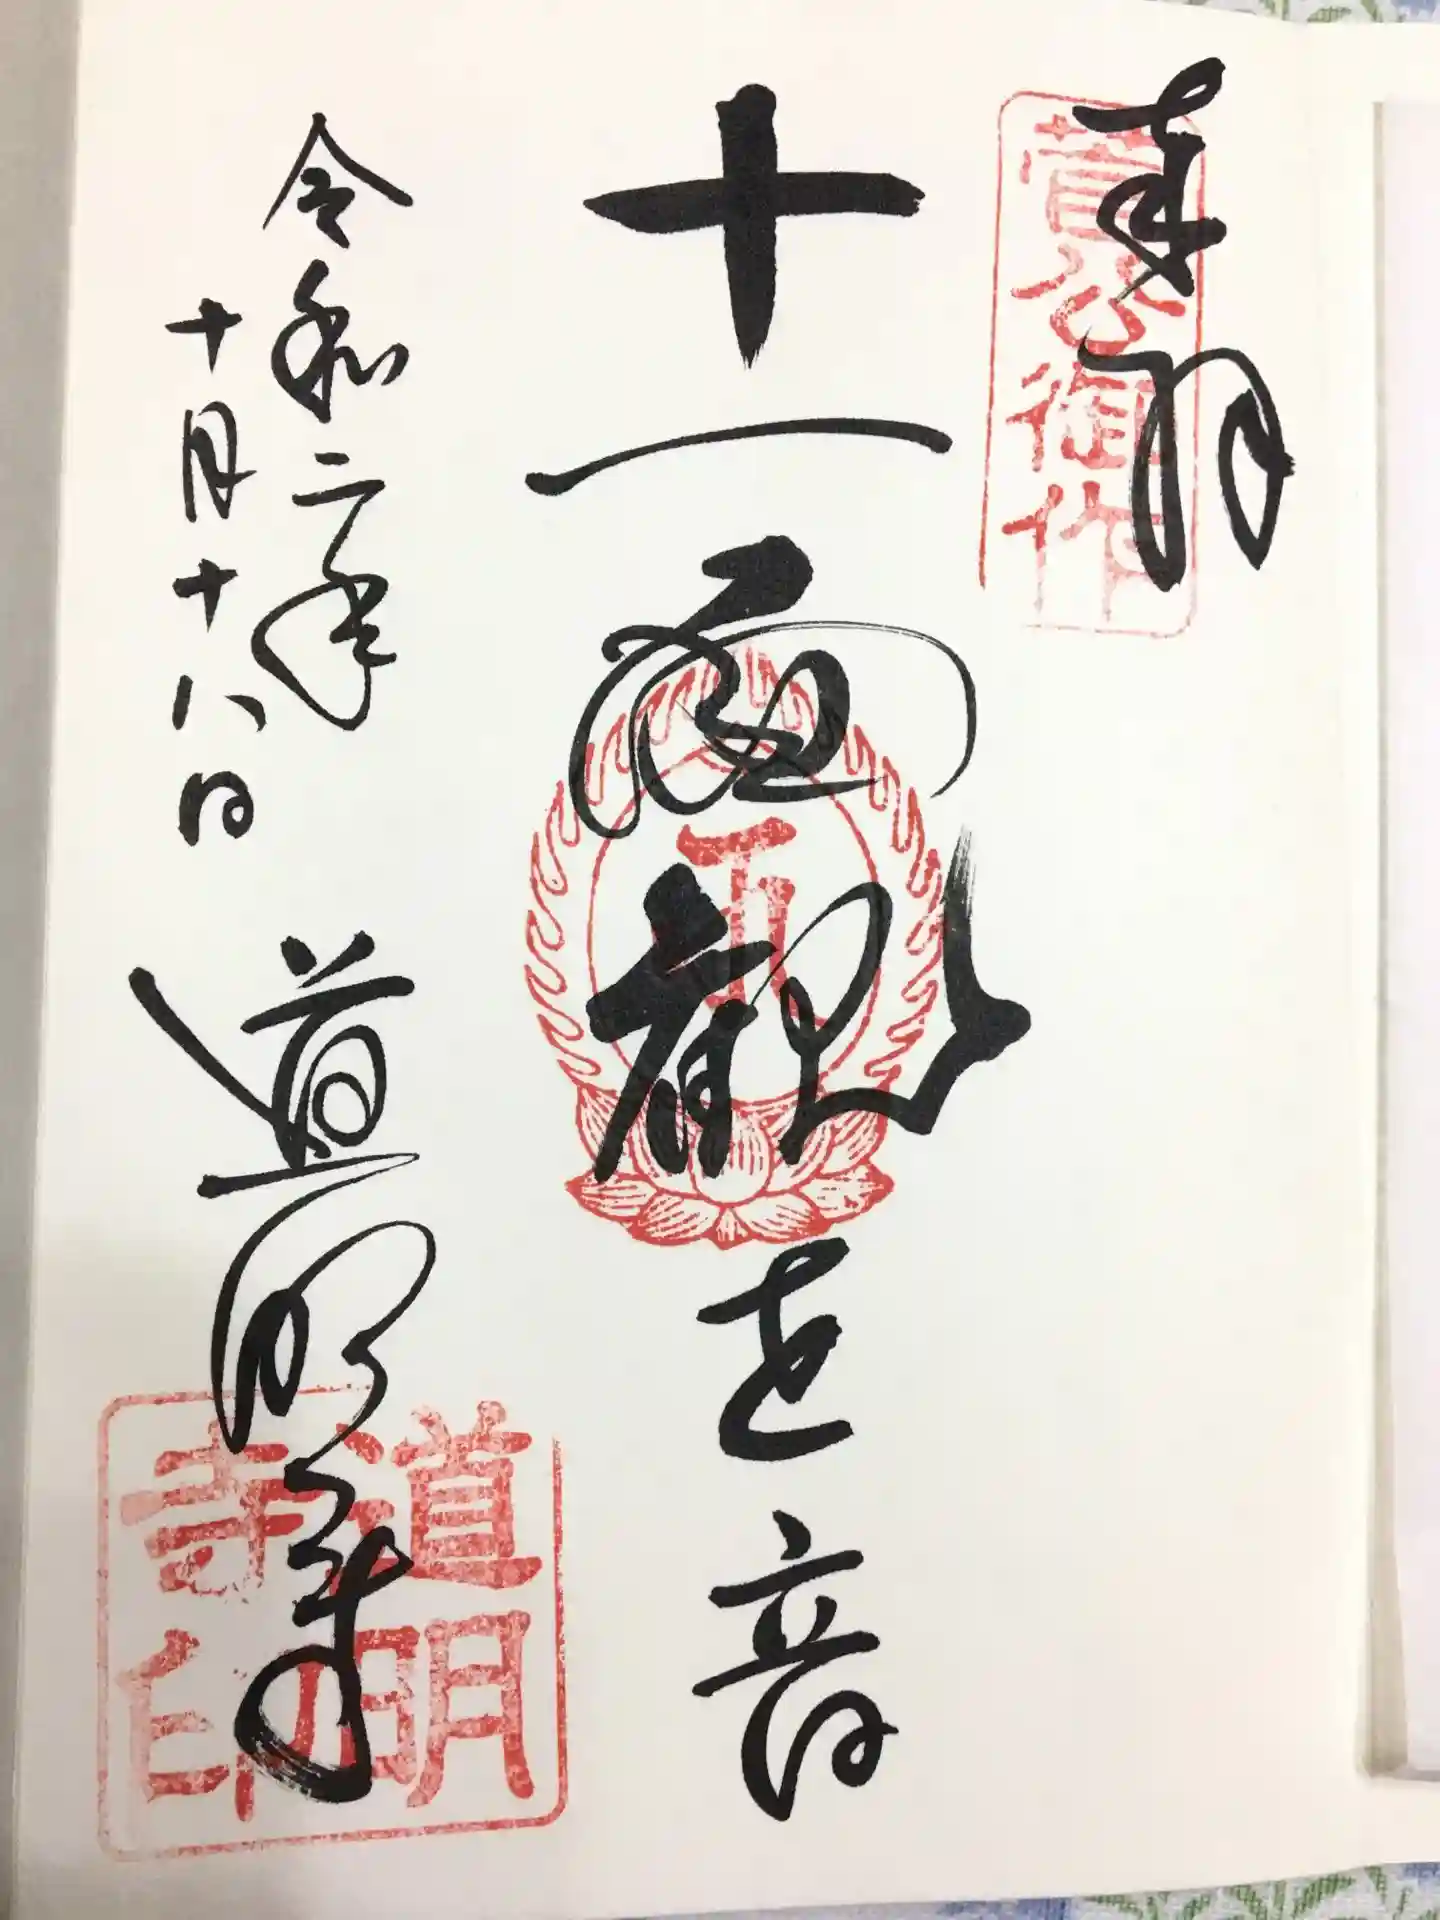 奉拝
菅公御作
十一面観世音
令和二年
十月十八日
道明寺
道明
寺印